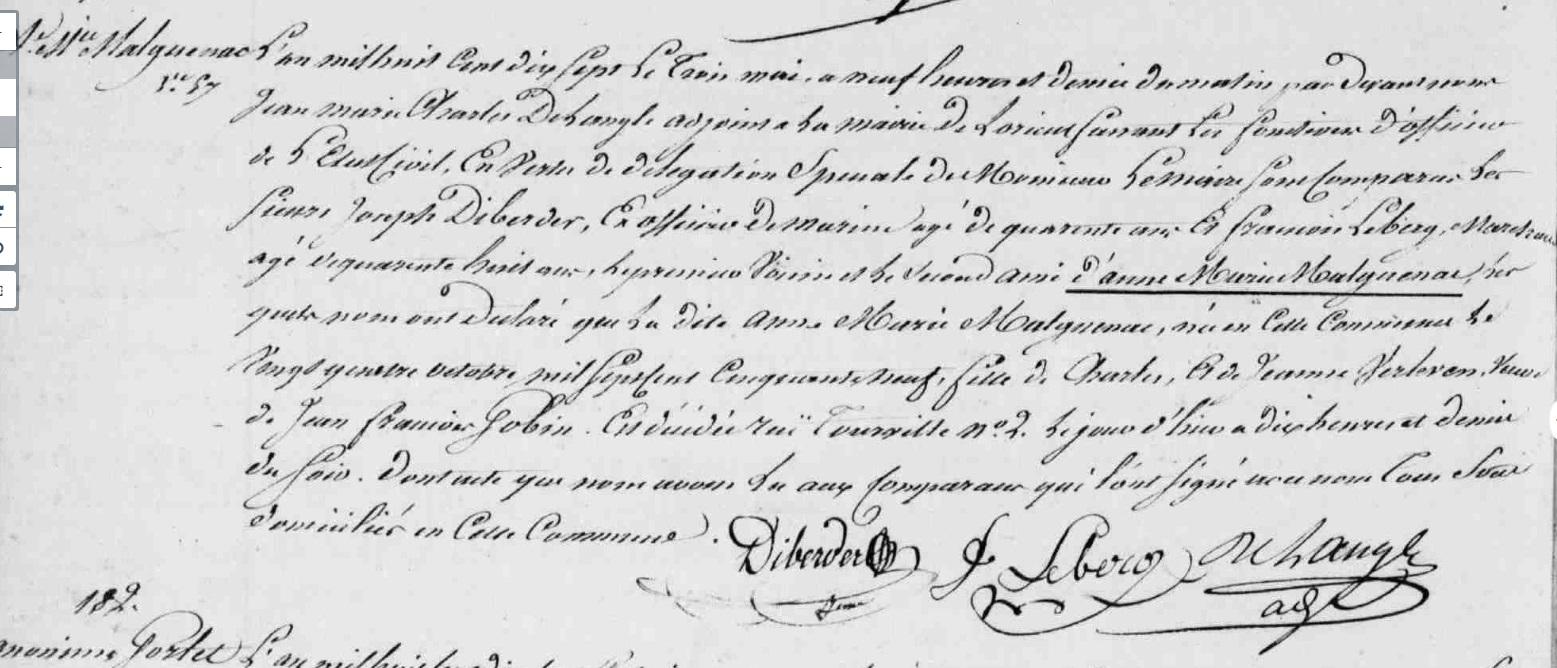 Malguenac
L'an mil huit Cent dix sept Le Trois mai, a neuf heures et demie du matin par devant nous
Jean marie Charles DeLangle adjoint a La mairie de Lorient faisant Les fonctions d'officier
de L'Etat Civil, En Vertu de délégation Spéciale de Monsieur Le Maire sont Comparus Les
sieurs Joseph Diberder, Ex officier de marine agé de quarente ans Et françois Leberg, Marchand
agé de quarente huit ans, Le premier Voisin et Le second ami d'anne Marie Malguenac, Les
quels nous ont Déclaré que La dite anne Marie Malguenac, née en Cette Commune Le
Vingt quatre octobre mil sept Cent Cinquante neuf, fille de Charles, Et de Jeanne Veuve
de Jean françois Gobin. Est décédée rue Tourville n° 2. Le jour d'hier a dix heures et demie
du soir. Dont acte que nous avons Lu aux Comparans qui l'ont signé avec nous Tous
domiciliés en Cette Commune.
Diberder J. Leberg DeLangle
adj
182.
anonime Gortet L'an mil huit